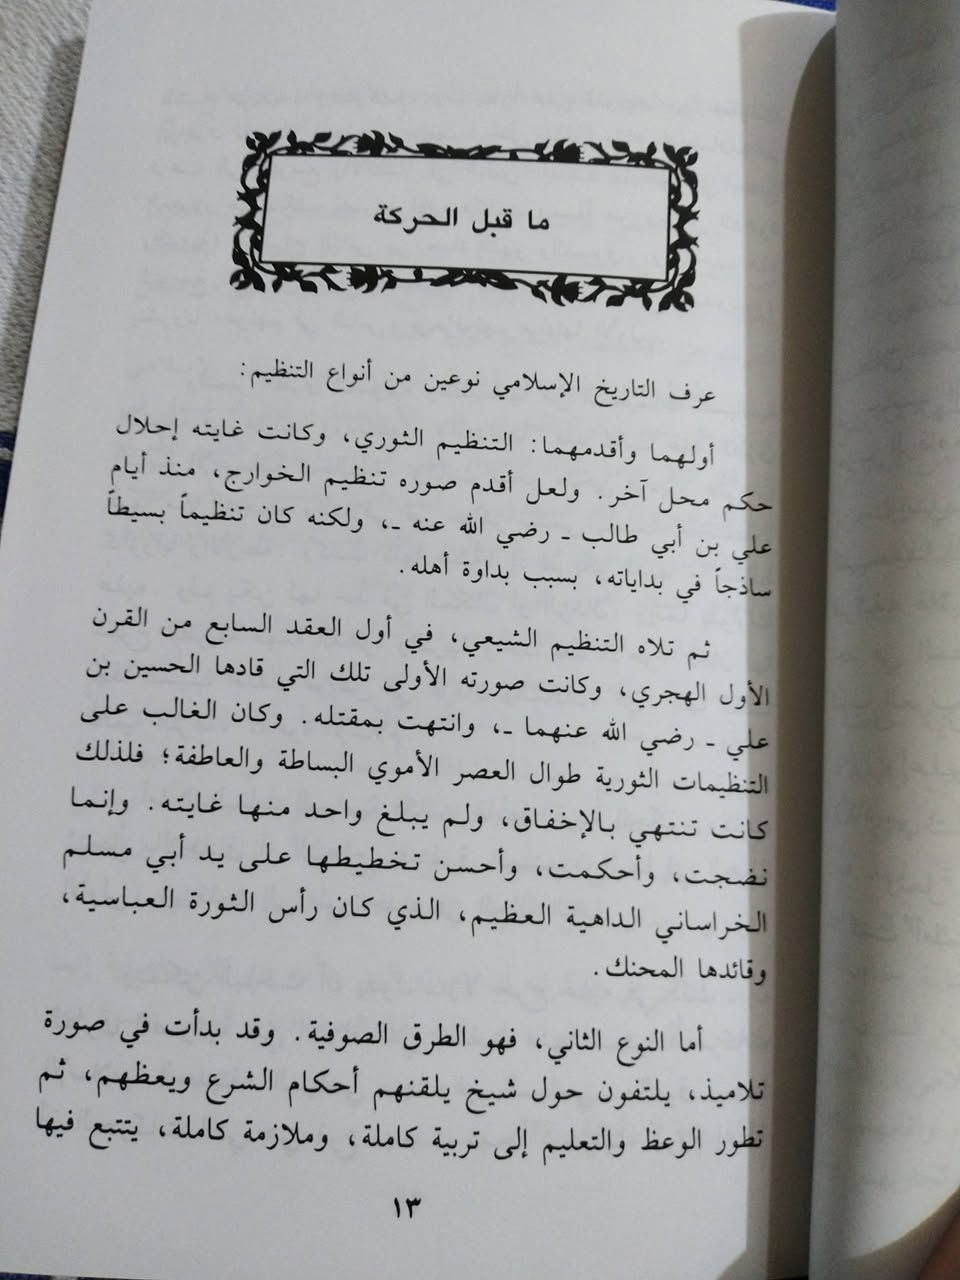 ما قبل الحركة
عرف التاريخ الإسلامي نوعين من أنواع التنظيم:
أولهما وأقدمهما: التنظيم الثوري، وكانت غايته إحلال
حكم محل آخر. ولعل أقدم صوره تنظيم الخوارج، منذ أيام
علي بن أبي طالب ـ رضي الله عنه ـ، ولكنه كان تنظيماً بسيطاً
ساذجاً في بداياته، بسبب بداوة أهله.
ثم تلاه التنظيم الشيعي، في أول العقد السابع من القرن
الأول الهجري، وكانت صورته الأولى تلك التي قادها الحسين بن
علي ـ رضي الله عنهما ـ، وانتهت بمقتله. وكان الغالب على
التنظيمات الثورية طوال العصر الأموي البساطة والعاطفة؛ فلذلك
كانت تنتهي بالإخفاق، ولم يبلغ واحد منها غايته. وإنما
نضجت، وأحكمت، وأحسن تخطيطها على يد أبي مسلم
الخراساني الداهية العظيم، الذي كان رأس الثورة العباسية،
وقائدها المحنك.
أما النوع الثاني، فهو الطرق الصوفية. وقد بدأت في صورة
تلاميذ، يلتفون حول شيخ يلقنهم أحكام الشرع ويعظهم، ثم
تطور الوعظ والتعليم إلى تربية كاملة، وملازمة كاملة، يتتبع فيها
١٣